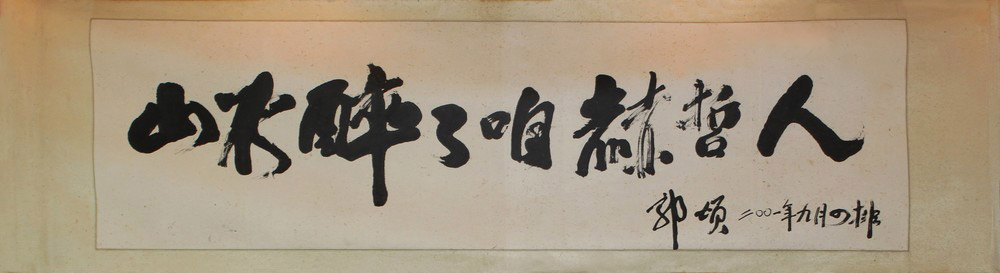 山水醉了咱赫哲人
郭颂 二〇〇一年九月四排